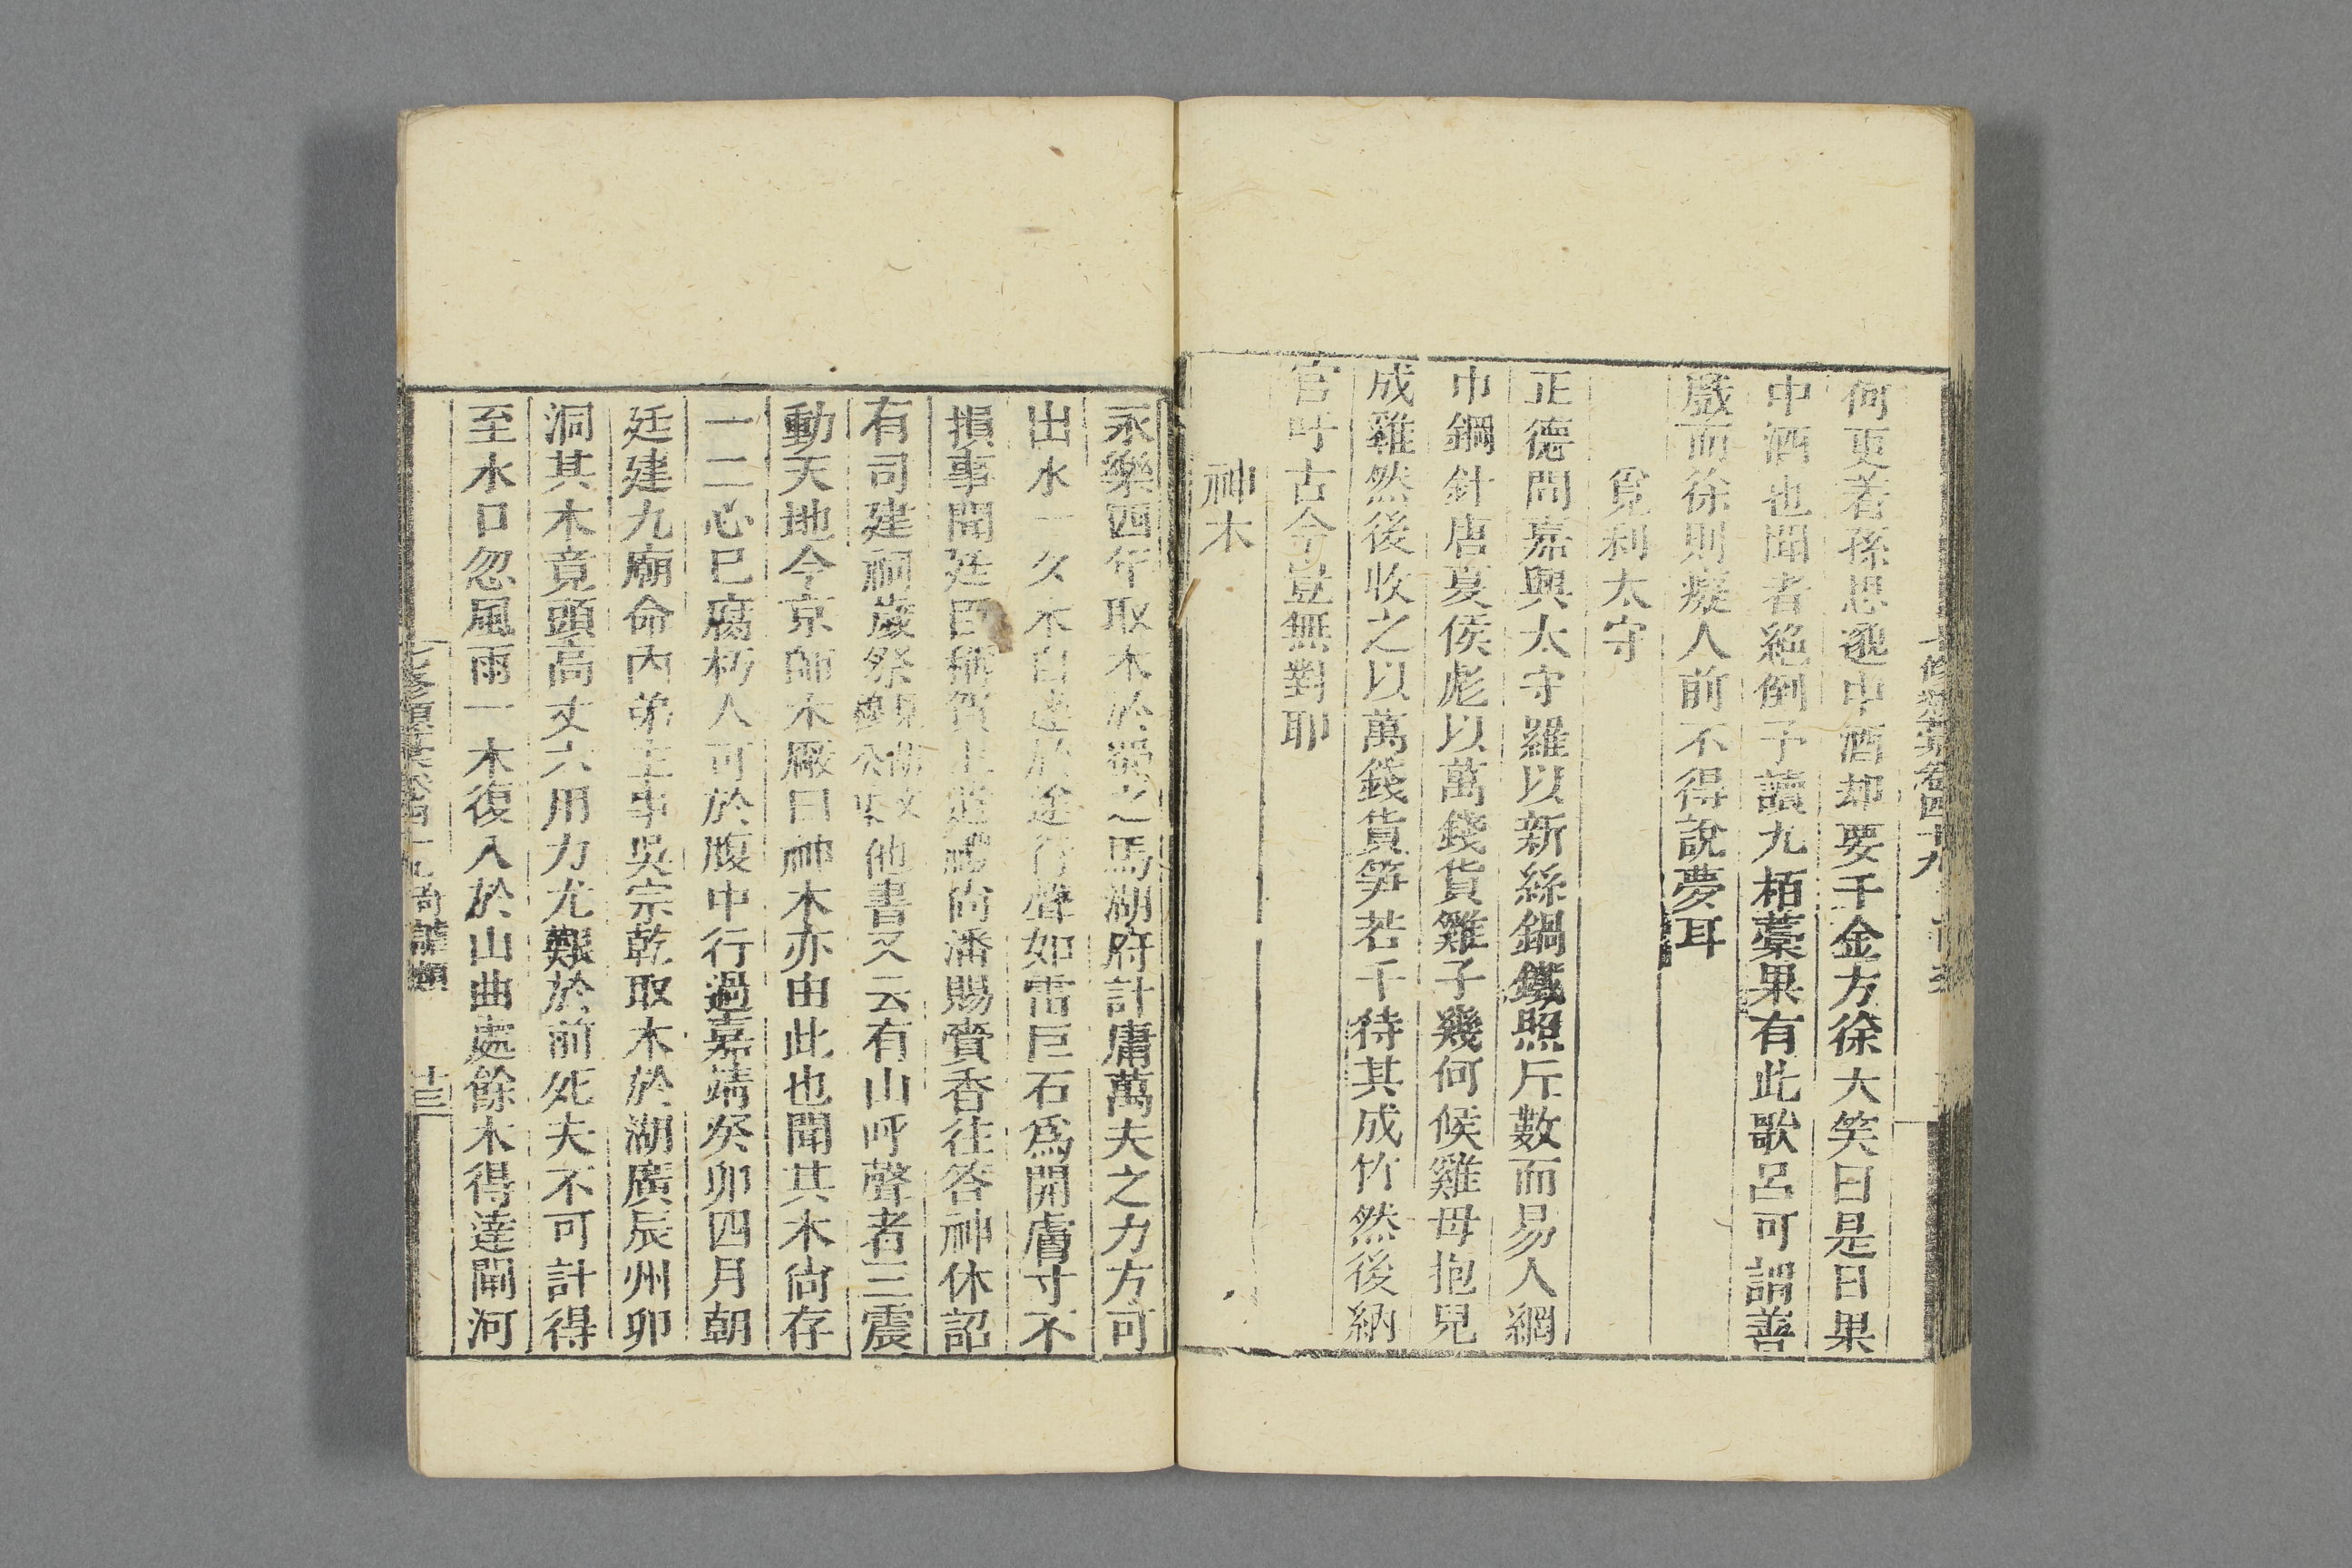 何更若孫思邈中酒却要千金方徐大笑曰是日果
中酒也聞者絶倒予讀九栢藁果有此歌呂可謂善
戲而徐則癡人前不得說夢耳
覓利太守
正德間嘉興太守羅以新絲鍋鐵照斤數而易人綱
巾鋼針唐夏侯彪以萬錢貨雞子幾何候雞母抱兒
成雞然後收之以萬錢貨笋若干待其成竹然後納
官吁古今豈無對耶
神木
永樂四年取木於蜀之馬湖府計庸萬夫之力方可
出水一夕木自達於途行聲如雷巨石爲開膚寸不
損事聞廷臣稱賀上遣禮尚潘賜賫香徃答神休詔
有司建祠歲祭他書又云有山呼聲者三震
動天地今京師木廠曰神木亦由此也聞其木尚存
一二心已腐朽人可於腹中行過嘉靖癸卯四月朝
廷建九廟命内弟主事吳宗乾取木於湖廣辰州卯
洞其木竟頭高丈六用力尤艱於前死夫不可計得
至水口忽風雨一木復入於山曲處餘木得達閘河
七修類藁卷四十九 奇謔類 十三